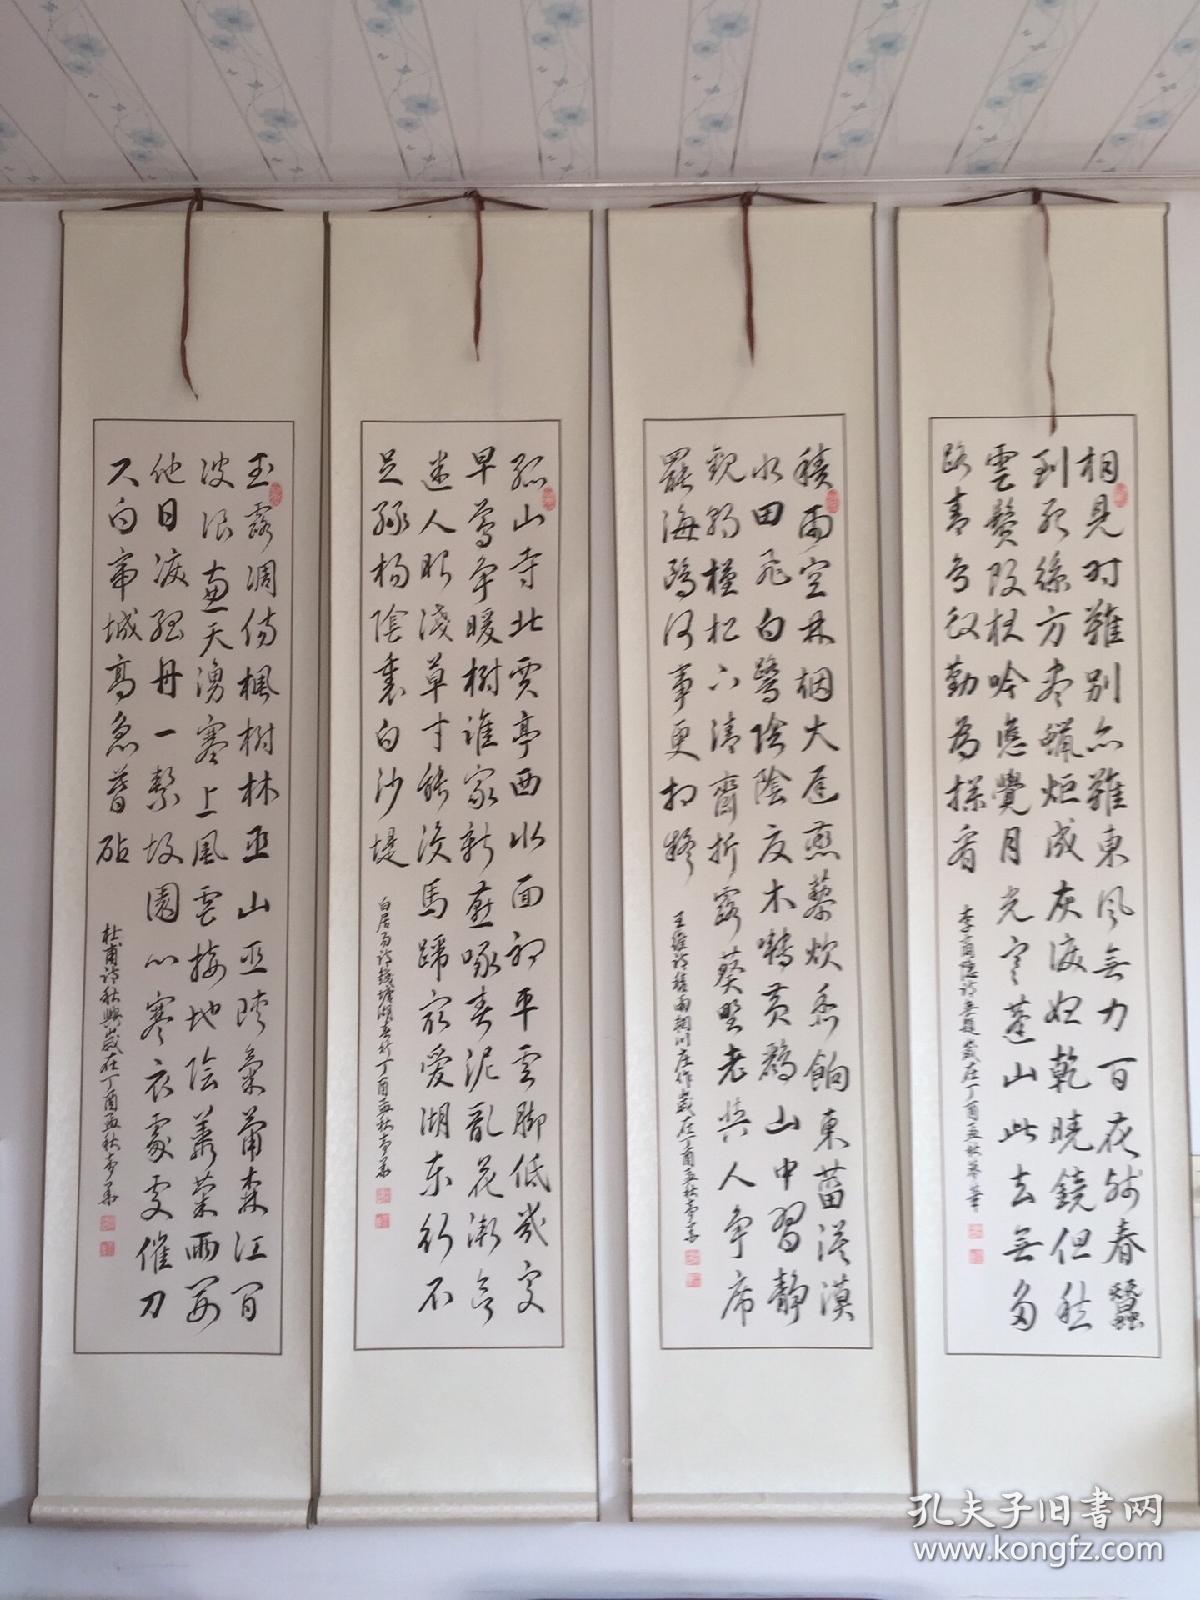 相見时難别亦難東风無力百花残春蠶
到死絲方盡蠟炬成灰淚始乾曉鏡但愁
雲鬓改夜吟應覺月光寒蓬山此去無多
路青鸟殷勤為探看
李商隐诗無題歲在丁酉孟秋
積雨空林烟火遲蒸藜炊黍餉東菑漠漠
水田飛白鷺陰陰夏木囀黄鸝山中習靜
觀朝槿松下清齋折露葵野老與人争席
罷海鷗何事更相疑
王維诗積雨輞川庄作歲在丁酉孟秋
孤山寺北贾亭西水面初平雲脚低幾處
早莺争暖樹谁家新燕啄春泥亂花漸欲
迷人眼淺草才能没馬蹄最愛湖东行不
足绿杨陰裏白沙堤
白居易诗錢塘湖春行丁酉孟秋
玉露凋傷楓樹林巫山巫峡氣蕭森江间
波浪兼天湧塞上風雲接地陰叢菊两開
他日淚孤舟一繫故園心寒衣處處催刀
尺白帝城高急暮砧
杜甫诗秋興歲在丁酉孟秋
孔夫子旧书网
www.kongfz.com